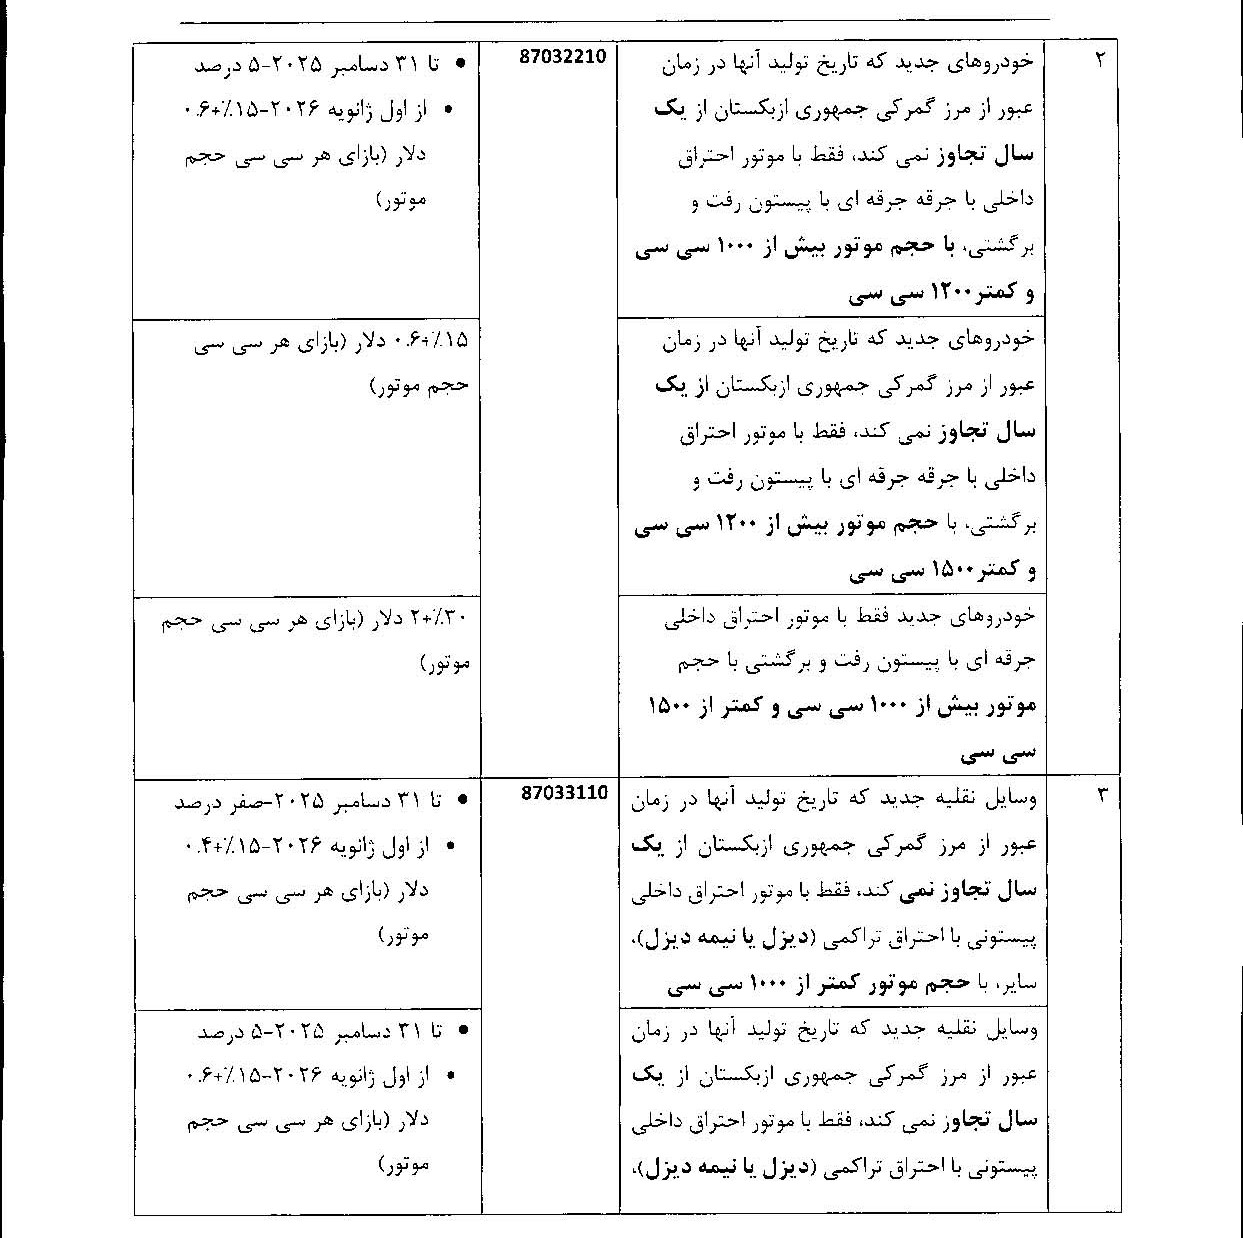 ۲
خودروهای جدید که تاریخ تولید آنها در زمان
عبور از مرز گمرکی جمهوری ازبکستان از یک
سال تجاوز نمی کند، فقط با موتور احتراق
داخلی با جرقه جرقه ای با پیستون رفت و
برگشتی، با حجم موتور بیش از ۱۰۰۰ سی سی
و کمتر ۱۲۰۰ سی سی
87032210
• تا ۳۱ دسامبر ۲۰۲۵-۵ درصد
• از اول ژانویه ۲۰۲۶-۱۵٪+۰.۶
دلار (بازای هر سی سی حجم
موتور)
خودروهای جدید که تاریخ تولید آنها در زمان
عبور از مرز گمرکی جمهوری ازبکستان از یک
سال تجاوز نمی کند، فقط با موتور احتراق
داخلی با جرقه جرقه ای با پیستون رفت و
برگشتی، با حجم موتور بیش از ۱۲۰۰ سی سی
و کمتر ۱۵۰۰ سی سی
۱۵٪+۰.۶ دلار (بازای هر سی سی
حجم موتور)
خودروهای جدید فقط با موتور احتراق داخلی
جرقه ای با پیستون رفت و برگشتی با حجم
موتور بیش از ۱۰۰۰ سی سی و کمتر از ۱۵۰۰
سی سی
۳۰٪+۲ دلار (بازای هر سی سی حجم
موتور)
۳
وسایل نقلیه جدید که تاریخ تولید آنها در زمان
عبور از مرز گمرکی جمهوری ازبکستان از یک
سال تجاوز نمی کند، فقط با موتور احتراق داخلی
پیستونی با احتراق تراکمی (دیزل یا نیمه دیزل)،
سایر، با حجم موتور کمتر از ۱۰۰۰ سی سی
87033110
• تا ۳۱ دسامبر ۲۰۲۵-صفر درصد
• از اول ژانویه ۲۰۲۶-۱۵٪+۰.۴
دلار (بازای هر سی سی حجم
موتور)
وسایل نقلیه جدید که تاریخ تولید آنها در زمان
عبور از مرز گمرکی جمهوری ازبکستان از یک
سال تجاوز نمی کند، فقط با موتور احتراق داخلی
پیستونی با احتراق تراکمی (دیزل یا نیمه دیزل)،
• تا ۳۱ دسامبر ۲۰۲۵-۵ درصد
• از اول ژانویه ۲۰۲۶-۱۵٪+۰.۶
دلار (بازای هر سی سی حجم
موتور)